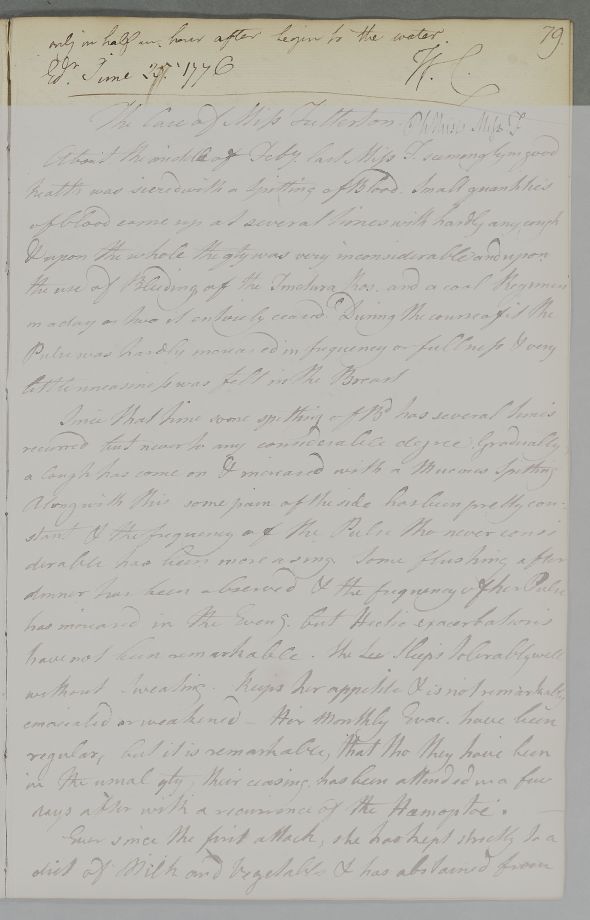 only in half an hour after begin to the water.
79
Edr. June 27 1776
W. C.
The Case of Miss Fullerton. Phthisis Miss F
About the middle of Feby. last Miss F. seemingly in good
health was seized with a Spitting of Blood. Small quantities
of blood came up at several times with hardly any cough
& upon the whole the qty was very inconsiderable and upon
the use of Bleeding of the Tinctura Ros. and a cool Regimen
in a day or two it entirely ceased. During the course of it the
Pulse was hardly increased in frequency or fullness & very
little uneasiness was felt in the Breast
Since that time some spitting of Bd has several times
recurred but never to any considerable degree. Gradually
a Cough has come on & increased with a Mucous Spitting
Along with this some pain of the side has been pretty con-
stant & the frequency of the Pulse tho never consi
derable has been increasing. Some flushing after
dinner has been observed & the frequency of her Pulse
has increased in the Eveng. but Hectic exacerbations
have not been remarkable. She Sleeps tolerably well
without Sweating. Keeps her appetite & is not remarkably
emaciated or weakened - Her Monthly Evac. have been
regular, but it is remarkable, that tho they have been
in the usual qty, their ceasing has been attended in a few
days after with a recurrence of the Hæmoptoe.
Ever since the first attack, she has kept strictly to a
diet of Milk and Vegetables & has abstained from